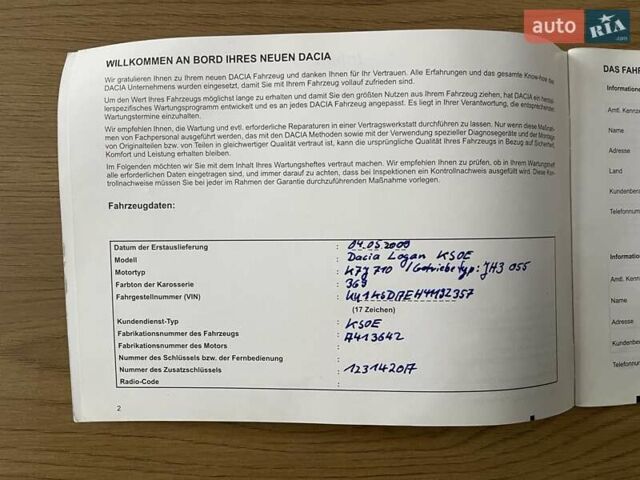 auto RIA.com
WILLKOMMEN AN BORD IHRES NEUEN DACIA
Wir gratulieren Ihnen zu Ihrem neuen DACIA Fahrzeug und danken Ihnen für Ihr Vertrauen. Alle Erfahrungen und das gesamte Know-how des
DACIA Unternehmens wurden eingesetzt, damit Sie mit Ihrem Fahrzeug vollauf zufrieden sind.
Um den Wert Ihres Fahrzeugs möglichst lange zu erhalten und damit Sie den größten Nutzen aus Ihrem Fahrzeug ziehen, hat DACIA ein
lerspezifisches Wartungsprogramm entwickelt und es an jedes DACIA Fahrzeug angepasst. Es liegt in Ihrer Verantwortung, die entsprechenden
Wartungstermine einzuhalten.
Wir empfehlen Ihnen, die Wartung und evtl. erforderliche Reparaturen in einer Vertragswerkstatt durchführen zu lassen. Nur wenn diese Maßnah-
men von Fachpersonal ausgeführt werden, das mit den DACIA Methoden sowie mit der Verwendung spezieller Diagnosegeräte und der Montage
von Originalteilen bzw. von Teilen in gleichwertiger Qualität vertraut ist, kann die ursprüngliche Qualität Ihres Fahrzeugs in Bezug auf Sicherheit,
Komfort und Leistung erhalten bleiben.
Im Folgenden möchten wir Sie mit dem Inhalt Ihres Wartungsheftes vertraut machen. Wir empfehlen Ihnen zu prüfen, ob in Ihrem Wartungsheft
alle erforderlichen Daten eingetragen sind, und immer darauf zu achten, dass bei Inspektionen ein Kontrollnachweis ausgefüllt wird. Diese Kon-
trollnachweise müssen Sie bei jeder im Rahmen der Garantie durchzuführenden Maßnahme vorlegen.
Fahrzeugdaten:
Datum der Erstauslieferung : 04.05.2009
Modell : Dacia Logan KSOE
Motortyp : K7J 710 / Getriebetyp: JH3 055
Farbton der Karosserie : 369
Fahrgestellnummer (VIN) :
(17 Zeichen)
Kundendienst-Typ : KSOE
Fabrikationsnummer des Fahrzeugs : A413642
Fabrikationsnummer des Motors :
Nummer des Schlüssels bzw. der Fernbedienung :
Nummer des Zusatzschlüssels : 1231420A
Radio-Code :
2
DAS FAHR
Informatione
Amtl. Kennz
Name
Adresse
Land
Kundenbera
Telefonnum
Information
Amtl. Kenn
Name
Adresse
Kundenber
Telefonnum